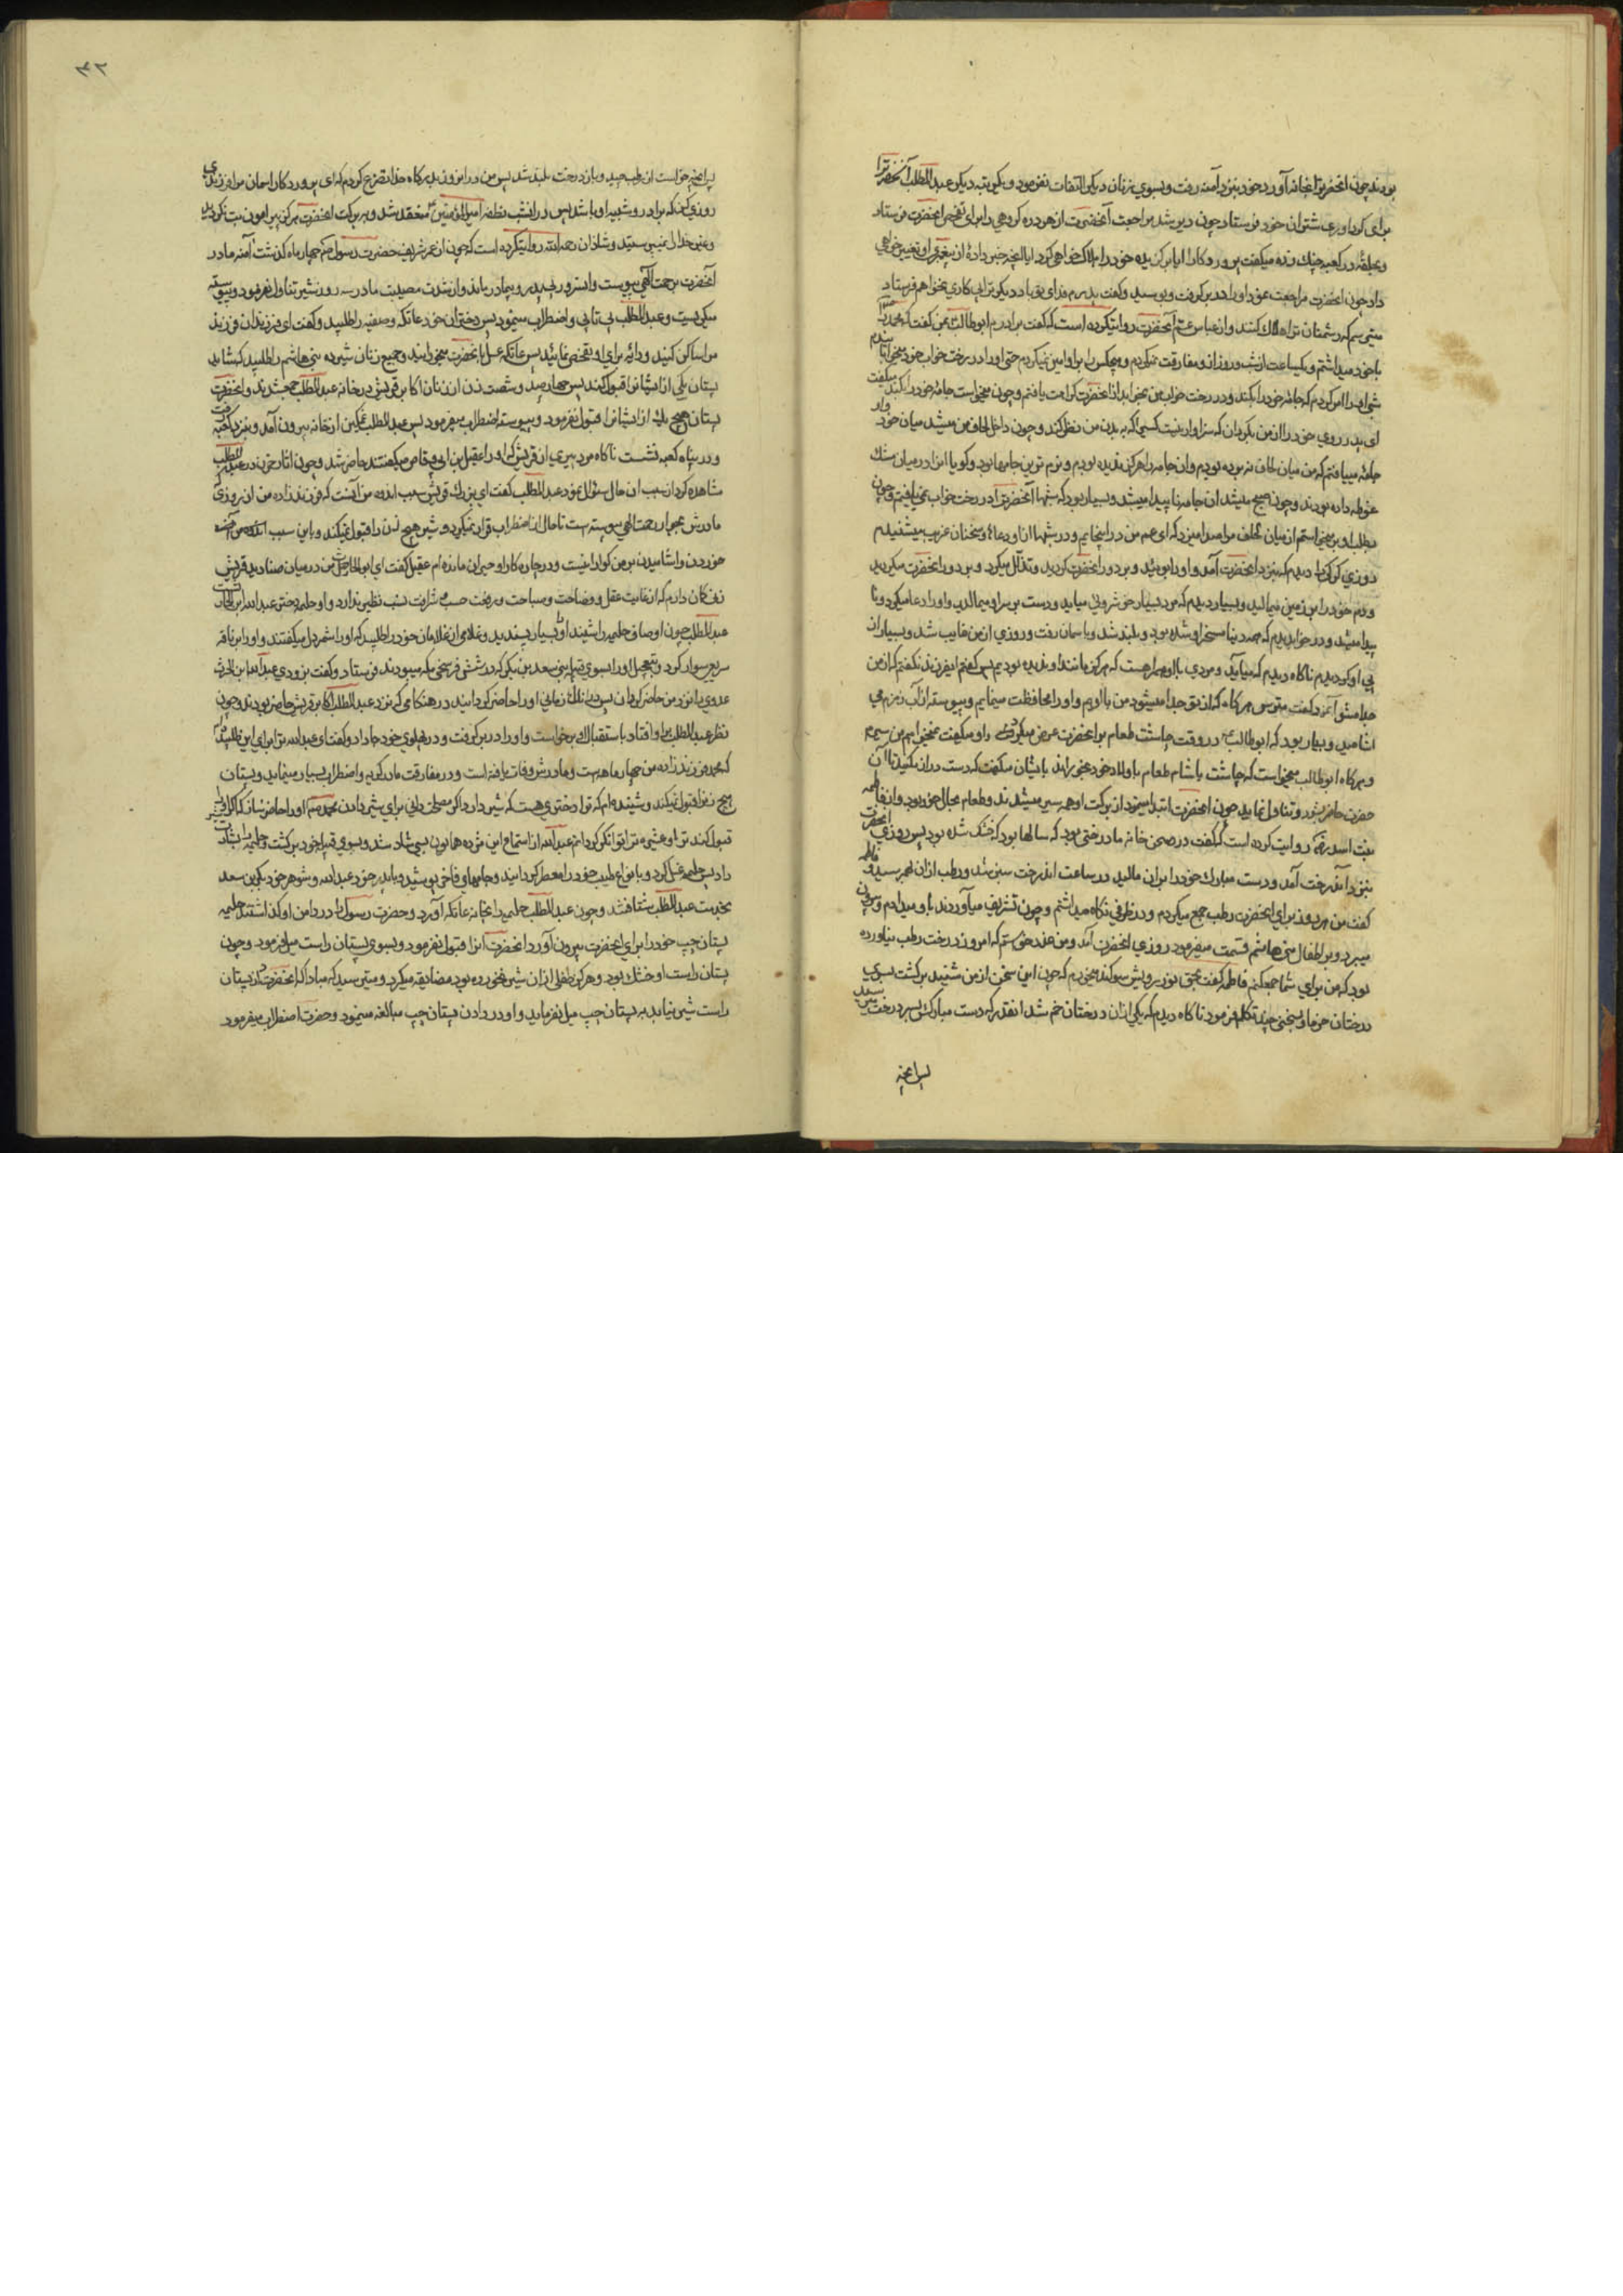 بودند چون آنحضرترا بخانه آورد خود بنزد آمنه رفت و بسوی زنان دیگر التفات نفرمود و یکمرتبه دیگر عبد المطلب آنحضرترا
برای گرداوری شتران خود فرستاد چون دیر شد مراجعت آنحضرت از هر دره گروهی را برای تفحص آنحضرت فرستاد
و بحلقه در کعبه چنگ زده میگفت پروردگارا ایا برگزیده خود را هلاک خواهی کرد ایا آنچه خبر دادهٔ از پیغمبری او تغییر خواهی
داد چون آنحضرت مراجعت نمود او را در بر گرفت و بوسید و گفت پدرم فدای تو باد دیگر ترا پی کاری نخواهم فرستاد
میترسم که دشمنان ترا هلاک کنند و از عباس عم آنحضرت روایتکرده است که گفت برادرم ابوطالب بمن گفت که محمد را
با خود میداشتم و یکساعت از شب و روز از او مفارقت نمیکردم و هیچکس را بر او امین نمیکردم حتی او را در رخت خواب خود میخوابانیدم
شبی او را امر کردم که جامهٔ خود را بکند و در رخت خواب من بخوابد از آنحضرت کراهت یافتم و چون میخواست جامهٔ خود را بکند میگفت
ای پدر روی خود را از من بگردان که سزاوار نیست کسی را که به بدن من نظر کند و چون داخل لحاف من میشد میان خود و او
جامهٔ مییافتم که من میان لحاف نبرده بودم و آن جامه را هرگز ندیده بودم و نرم ترین جامها بود و گویا آنرا در میان مشک
غوطه داده بودند و چون صبح میشد آن جامه ناپیدا میشد و بسیار بود که شبها آنحضرترا در رخت خواب نمی یافتم و چون
بطلب او بر میخواستم از میان لحاف مرا صدا میزد که ای عم من در اینجایم و در شبها از او دعاها و سخنان غریب میشنیدم
و روزی گرگی را دیدم که بنزد آنحضرت آمد و او را بوئید و بر دور آنحضرت گردید و تذلل میکرد و بر دور آنحضرت میگردید
و دم خود را بر زمین میمالید و بسیار دیدم که مرد بسیار خوشروئی میامد و دست بر سر او میمالید و او را دعا میکرد و نا
پیدا میشد و در خواب دیدم که همه دنیا مسخر او شده بود و بلند شد و باسمان رفت و روزی از من غایب شد و بسیار از
پی او گردیدم ناگاه دیدم که میاید و مردی با او همراهست که هرگز مانند او ندیده بودیم پس گفتم ایفرزند نگفتم که از من
جدا مشو آنمرد گفت مترس هرگاه که از تو جدا میشود من با اویم و او را محافظت مینمایم و پیوسته از آب زمزم می
اشامید و بسیار بود که ابوطالب در وقت چاشت طعام بر آنحضرت عرض میکرد و او میگفت نمیخواهم من سیرم
و هرگاه ابوطالب میخواست که چاشت یا شام طعام باولاد خود بخوراند بایشان میگفت که دست دراز مکنید تا آن
حضرت حاضر شود و تناول نماید چون آنحضرت ابتدا مینمود از برکت او همه سیر میشدند و طعام بحال خود بود و از فاطمه
بنت اسد روایت کرده است که گفت در صحن خانه ما درختی بود که سالها بود که خشک شده بود پس روزی آنحضرت
بنزد آندرخت آمد و دست مبارک خود را بر آن مالید در ساعت آندرخت سبز شد و رطب از آن بهم رسید و فاطمه
گفت من هر روز برای آنحضرت رطب جمع میکردم و در ظرفی نگاه میداشتم و چون تشریف میآوردند باو میدادم و بیرون
میبرد و بر اطفال بنی هاشم قسمت میفرمود روزی آنحضرت آمد و من عذر خواستم که امروز درخت رطب نیاورده
بود که من برای شما جمع کنم فاطمه گفت بحق نور رویش سوگند میخورم که چون این سخن از من شنید برگشت بسوی
درختان خرما و بسخنی چند تکلم فرمود ناگاه دیدم که یکی از آن درختان خم شد انقدر که دست مبارکش بسر درخت رسید
پس آنچه
۳۲
پس آنچه خواست از رطب چید و باز درخت بلند شد پس من در آنروز بدرگاه خدا تضرع کردم که ای پروردگار اسمان مرا فرزندی
روزی کن که برادر و شبیه او باشد پس در آنشب نطفه امیر المؤمنین منعقد شد و ببرکت آنحضرت هرگز پیرامون بت نگردید
و بغیر خدا را نپرستید و شاذان رحمه الله روایتکرده است که چون از عمر شریف حضرت رسول صلعم چهار ماه گذشت آمنه مادر
آنحضرت برحمت الهی پیوست و آن سرور بی پدر و بیمادر ماند و از شدت مصیبت مادر سه روز شیر تناول نفرمود و پیوسته
میگریست و عبد المطلب بی تابی و اضطراب مینمود پس دختران خود عاتکه و صفیه را طلبید و گفت ای فرزندان فرزند
مرا ساکن کنید و دایهٔ برای او تفحص نمائید پس عاتکه عسل بآنحضرت میخورانید و جمیع زنان شیرده بنی هاشم را طلبید که شاید
پستان یکی از ایشانرا قبول کند پس چهار صد و شصت زن از زنان اکابر قریش در خانه عبد المطلب جمع شدند و آنحضرت
پستان هیچ یک از ایشانرا قبول نفرمود و پیوسته اضطراب میفرمود پس عبد المطلب غمگین از خانه بیرون آمد و بنزد کعبه رفت
و در پناه کعبه نشست ناگاه مرد پیری از قریش که او را عقیل بن ابی وقاص میگفتند حاضر شد و چون اثار حزن در عبد المطلب
مشاهده کرد از سبب آن حال سؤال نمود عبد المطلب گفت ای بزرک قریش سبب اندوه من آنست که فرزند زاده من از روزی که
مادرش بجوار رحمت الهی پیوسته است تا حال از اضطراب قرار نمیگیرد و شیر هیچ زن را قبول نمیکند و باین سبب
خوردن و اشامیدن بر من گوارا نیست و در چاره کار او حیران مانده ام عقیل گفت ای ابو الحارث من در میان صنادید قریش
زنی گمان دارم که از غایت عقل و فصاحت و صباحت و رفعت حسب و شرافت نسب نظیر ندارد و او حلیمه دختر عبد الله بن الحارث است
عبد المطلب چون اوصاف حلیمه را شنید او را بسیار پسندید و غلامی از غلامان خود را طلبید که او را شمردل میگفتند و او را بر ناقه
سریع سوار کرد و بتعجیل او را بسوی قبیله بنی سعد بن بکر که در شش فرسخی مکه میبودند فرستاد و گفت بزودی عبد الله بن الحرث
عدوی را نزد من حاضر گردان پس در اندک زمانی او را حاضر گردانید در هنگامی که نزد عبد المطلب اکابر قریش حاضر بودند و چون
نظر عبد المطلب بر او افتاد باستقبال او برخواست و او را در بر گرفت و در پهلوی خود جا داد و گفت ای عبد الله ترا برای این طلبیده ام
که محمد فرزند زاده من چهار ماهه است و مادرش وفات یافته است و در مفارقت مادر گریه و اضطراب بسیار مینماید و پستان
هیچ زنرا قبول نمیکند و شنیده ام که ترا دختری هست که شیر دارد اگر مصلحت دانی برای شیر دادن محمد صلعم او را حاضر ساز که اگر شیر او را
قبول کند ترا و عشیره ترا توانگر گردانم عبد الله از استماع این مژده همایون بسی شاد شد و بسوی قبیله خود برگشت و حلیمه را بشارت
داد پس حلیمه غسل کرد و بانواع طیب خود را معطر گردانید و جامهای فاخر پوشید و با پدر خود عبد الله و شوهر خود بکر بن سعد
بخدمت عبد المطلب شتافتند و چون عبد المطلب حلیمه را بخانه عاتکه آورد و حضرت رسول را در دامن او گذاشتند حلیمه
پستان چپ خود را برای آنحضرت بیرون آورد آنحضرت آنرا قبول نفرمود و بسوی پستان راست میل فرمود و چون
پستان راست او خشک بود و هرگز طفلی از آن شیر نخورده بود مضایقه میکرد و میترسید که مبادا که آنحضرت از پستان
راست شیر نیابد به پستان چپ میل نفرماید و او در دادن پستان چپ مبالغه مینمود و حضرت اضطراب میفرمود